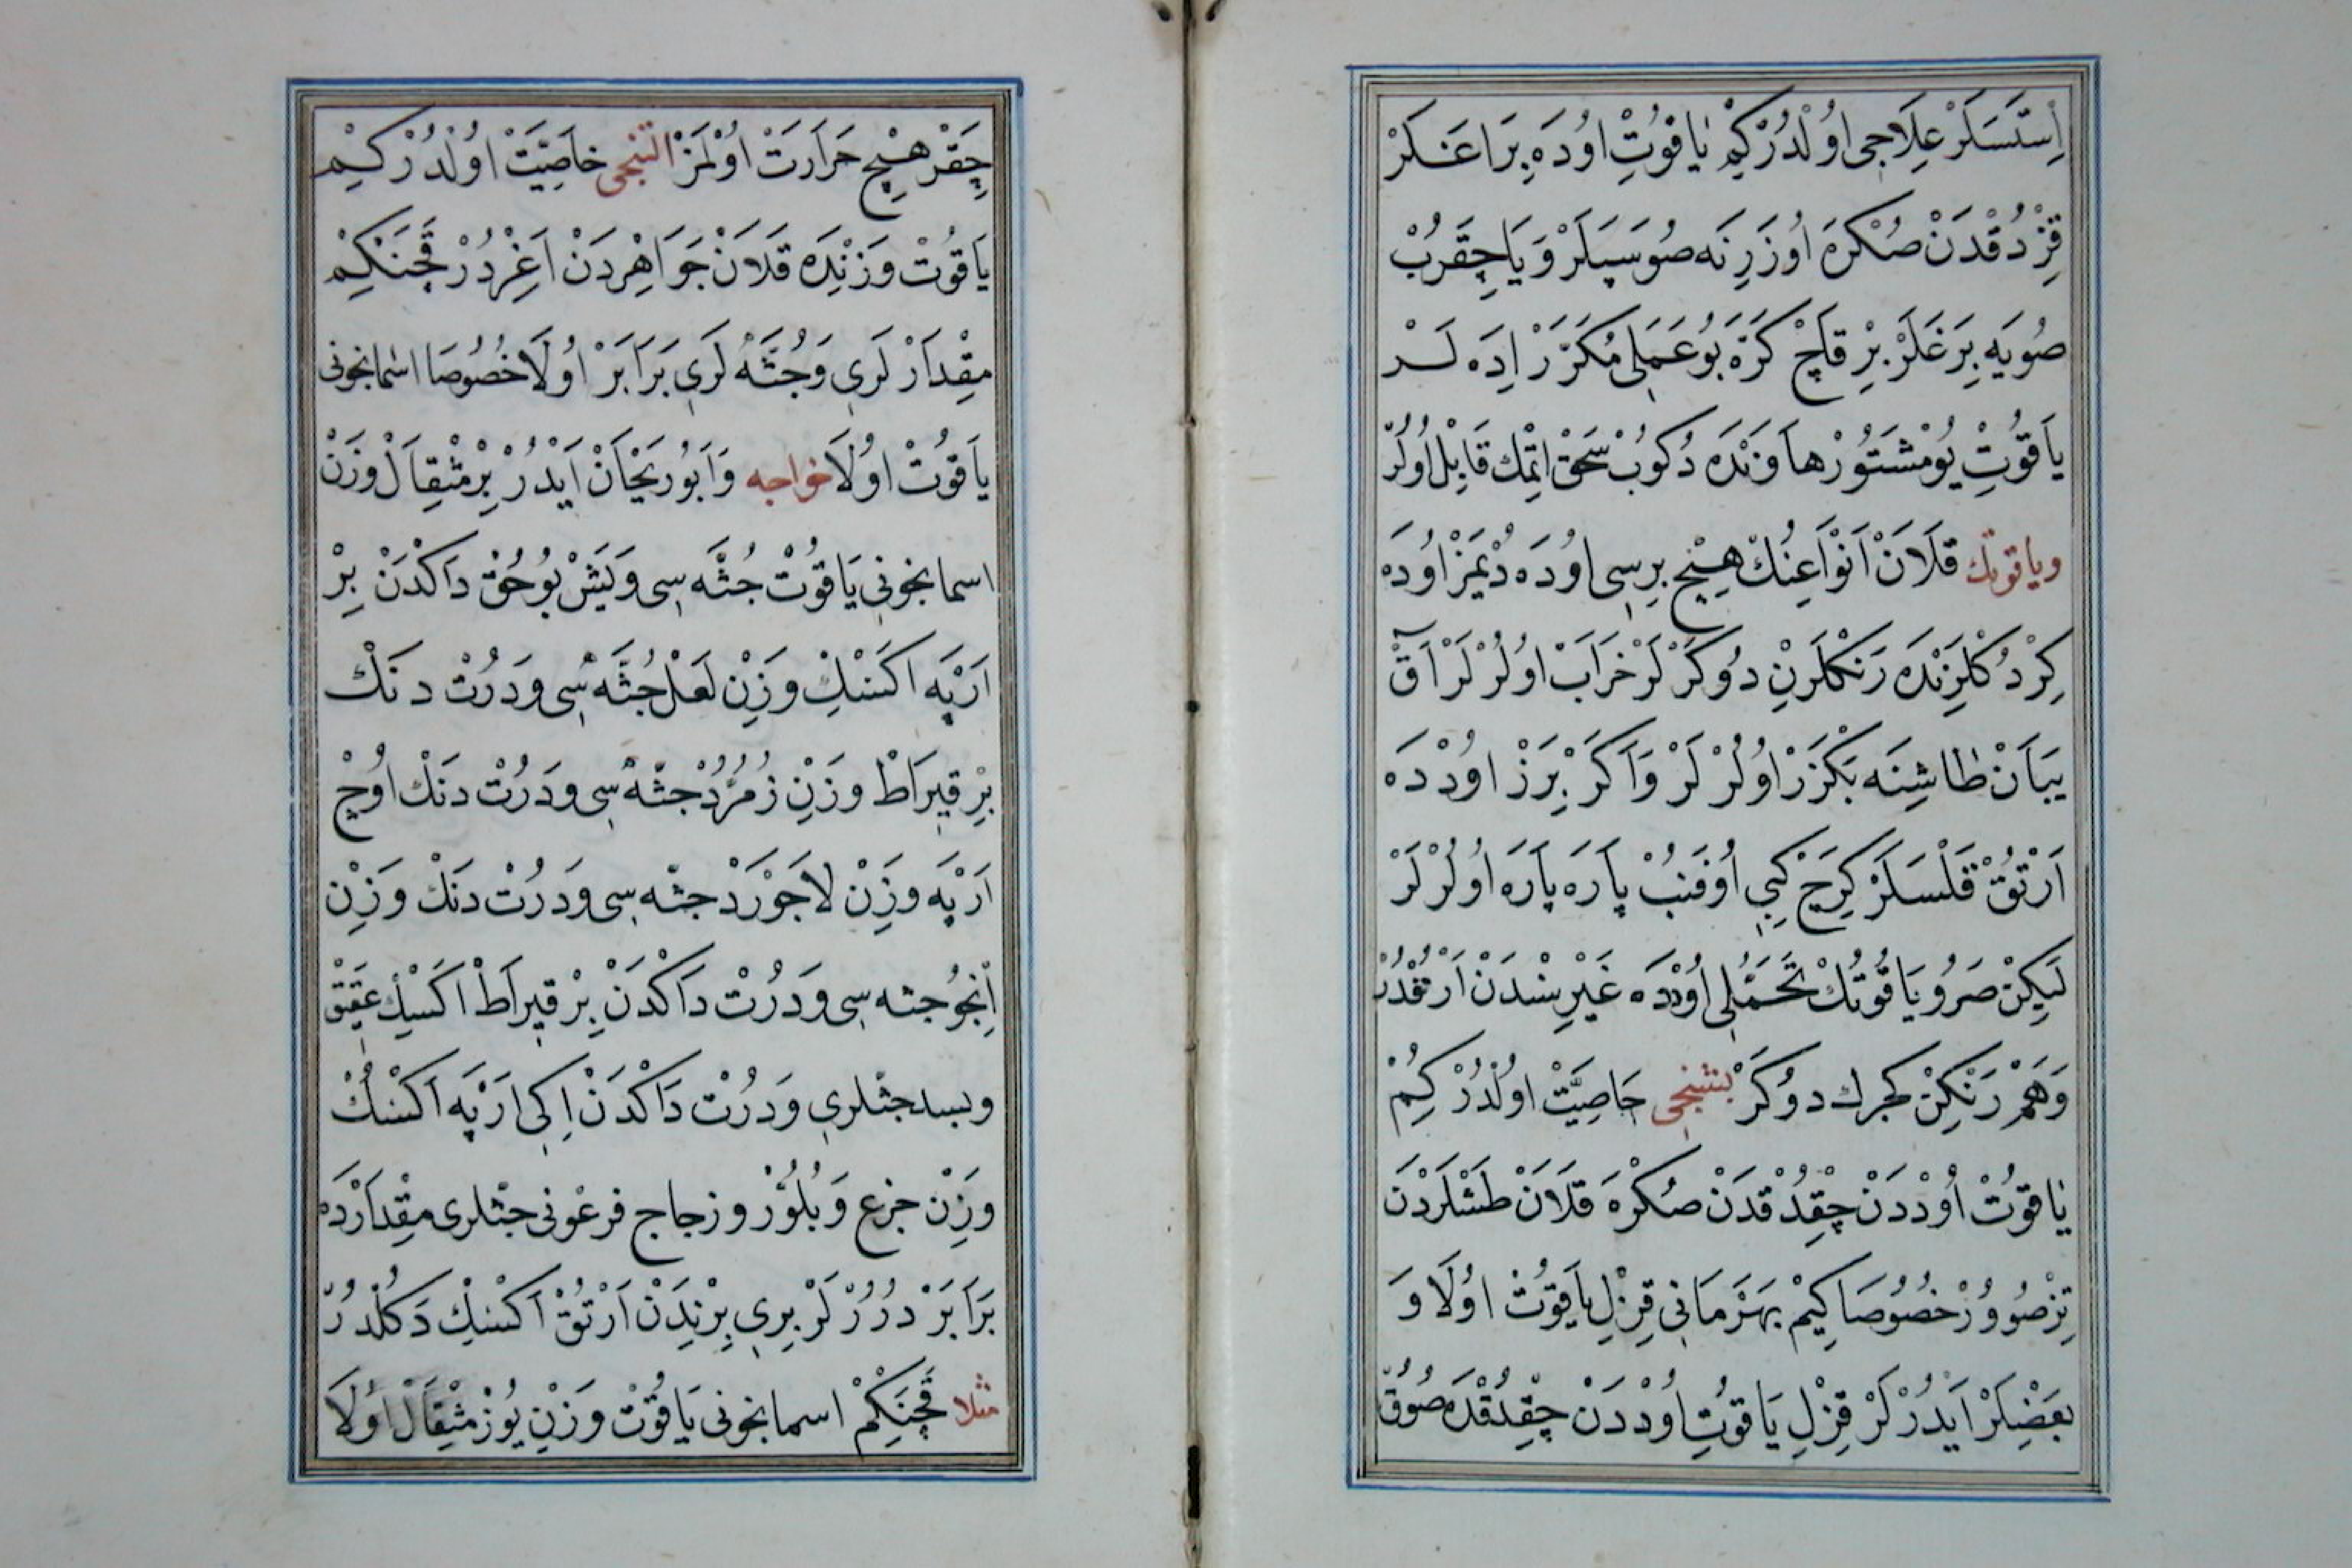 اِسْتَسَلَرْ عِلَاجِی اُولْدُرْكِیمْ یَاقُوتِ اُودَه بِرَاغَـلَرْ
قِزْدُقْدَنْ صُكْرَه اُوزَرِنَه صُو سَپَلَرْ وَیَا چِقَرُبْ
صُویَه بِرَغَلَرْ بِرْ قَاچْ كَرَّه بُو عَمَلِی مُكَرَّرْ اِدَه لَـر
یَاقُوتِ یُومْشَتُورْ هَاوَنْدَه دُكُوبْ سَحْقْ اِتْمِك قَابِلْ اُولُرْ
ویاقوتك قَلَانْ اَنْوَاعِنُكْ هِیْچ بِرِسِی اُودَه دُیَمَزْ اُودَه
كِرْدُكْلَرِنْدَه رَنْكْلَرِنِ دُوكَرْلَرْ خَرَابْ اُولُرْلَرْ آقْ
یَبَانْ طَاشِنَه بَكْزَرْ اُولُرْلَرْ وَاَكَرْ بِرَزْ اُودْدَه
اَرْتُقْ قَلْسَلَرْ كِرَجْ كِبِی اُوفَنُبْ پَارَه پَارَه اُولُرْلَرْ
لَیكِنْ صَرُو یَاقُوتُكْ تَحَمُّلِی اُودْدَه غَیْرِیسْنْدَنْ اَرْتُقْدُرْ
وَهَمْ رَنْكِنْ كجرك دُوكَرْ بشنجی خَاصِیَّتْ اُولْدُرْ كِیمْ
یَاقُوتْ اُودْدَنْ چِقْدُقْدَنْ صُكْرَه قَلَانْ طَشْلَرْدَنْ
تِزْ صُوورْ خُصُوصَا كِیمْ بَهْرَمَانِی قِزِلْ یَاقُوتْ اُولَا وَ
بَعْضِلَرْ اَیدُرْلَرْ قِزِلْ یَاقُوتِ اُودْدَنْ چِقْدُقْدَه صُوُقْ
چِقَرْ هِیْچ حَرَارَتْ اُولْمَزْ التنجی خَاصِیَّتْ اُولْدُرْكِیـم
یَاقُوتْ وَزْنِدَه قَلَانْ جَوَاهِرْدَنْ اَغِرْدُرْ قَچَنْكِمْ
مِقْدَارْلَرِی وَجُثَّه لَرِی بَرَابَرْ اُولَا خُصُوصَا اسْمَانْجُونِی
یَاقُوتْ اُولَا خواجه وَاَبُورَیْحَانْ اَیْدُرْ بِرْ مِثْقَالْ وَزْنْ
اسمانجونی یَاقُوتْ جُثَّه سِی وَبَشْ بُوچُقْ دَاَكْدَنْ بِرْ
اَرْپَه اَكْسَكْ وَزِنْ لَعَلْ جُثَّه سِی وَدَرُتْ دَنَكْ
بِرْ قِیرَاطْ وَزْنِ زُمُرُّدْ جُثَّه سِی وَدَرُتْ دَنَكْ اُوچْ
اَرْپَه وَزِنْ لَاجَوَرْدْ جثّه سِی وَدَرُتْ دَنَكْ وَزِنْ
اِنْجُو جثه سی وَدَرُتْ دَاَكْدَنْ بِرْ قِیرَاطْ اَكْسِكْ عَقِیق
وبسد جثّلری وَدَرُتْ دَاَكْدَنْ اِكِی اَرْپَه اَكْسُكْ
وَزِنْ جزع وَبُلُوْرْ وزجاج فرعونی جثّلری مِقْدَارْدَه
بَرَابَرْ دُرُرْلَرْ بِرِی بِرْنِدَنْ اَرْتُقْ اَكْسِكْ دَكُلْدُرْ
مثلا قَچَنْكِمْ اسمانجونی یَاقُوتْ وَزْنِ یُوزْ مِثْقَالْ اُولَا